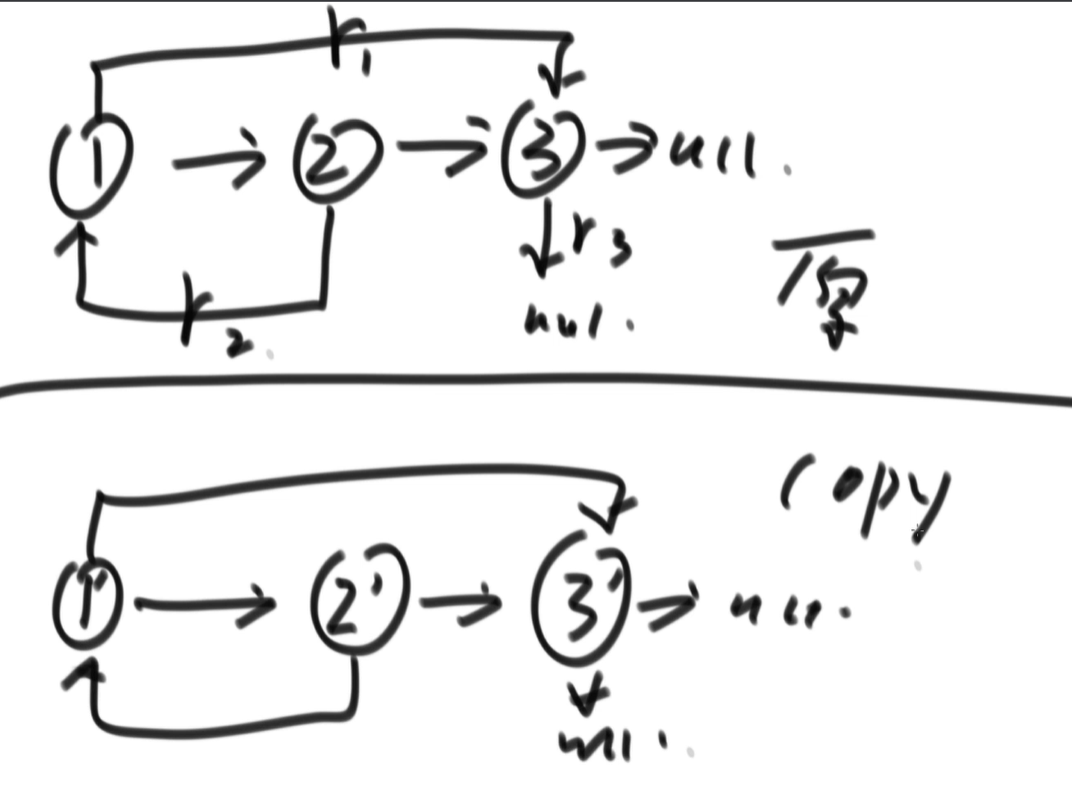 r1
1 → 2 → 3 → null
r3
null
原
r2
copy
1' → 2' → 3' → null
null